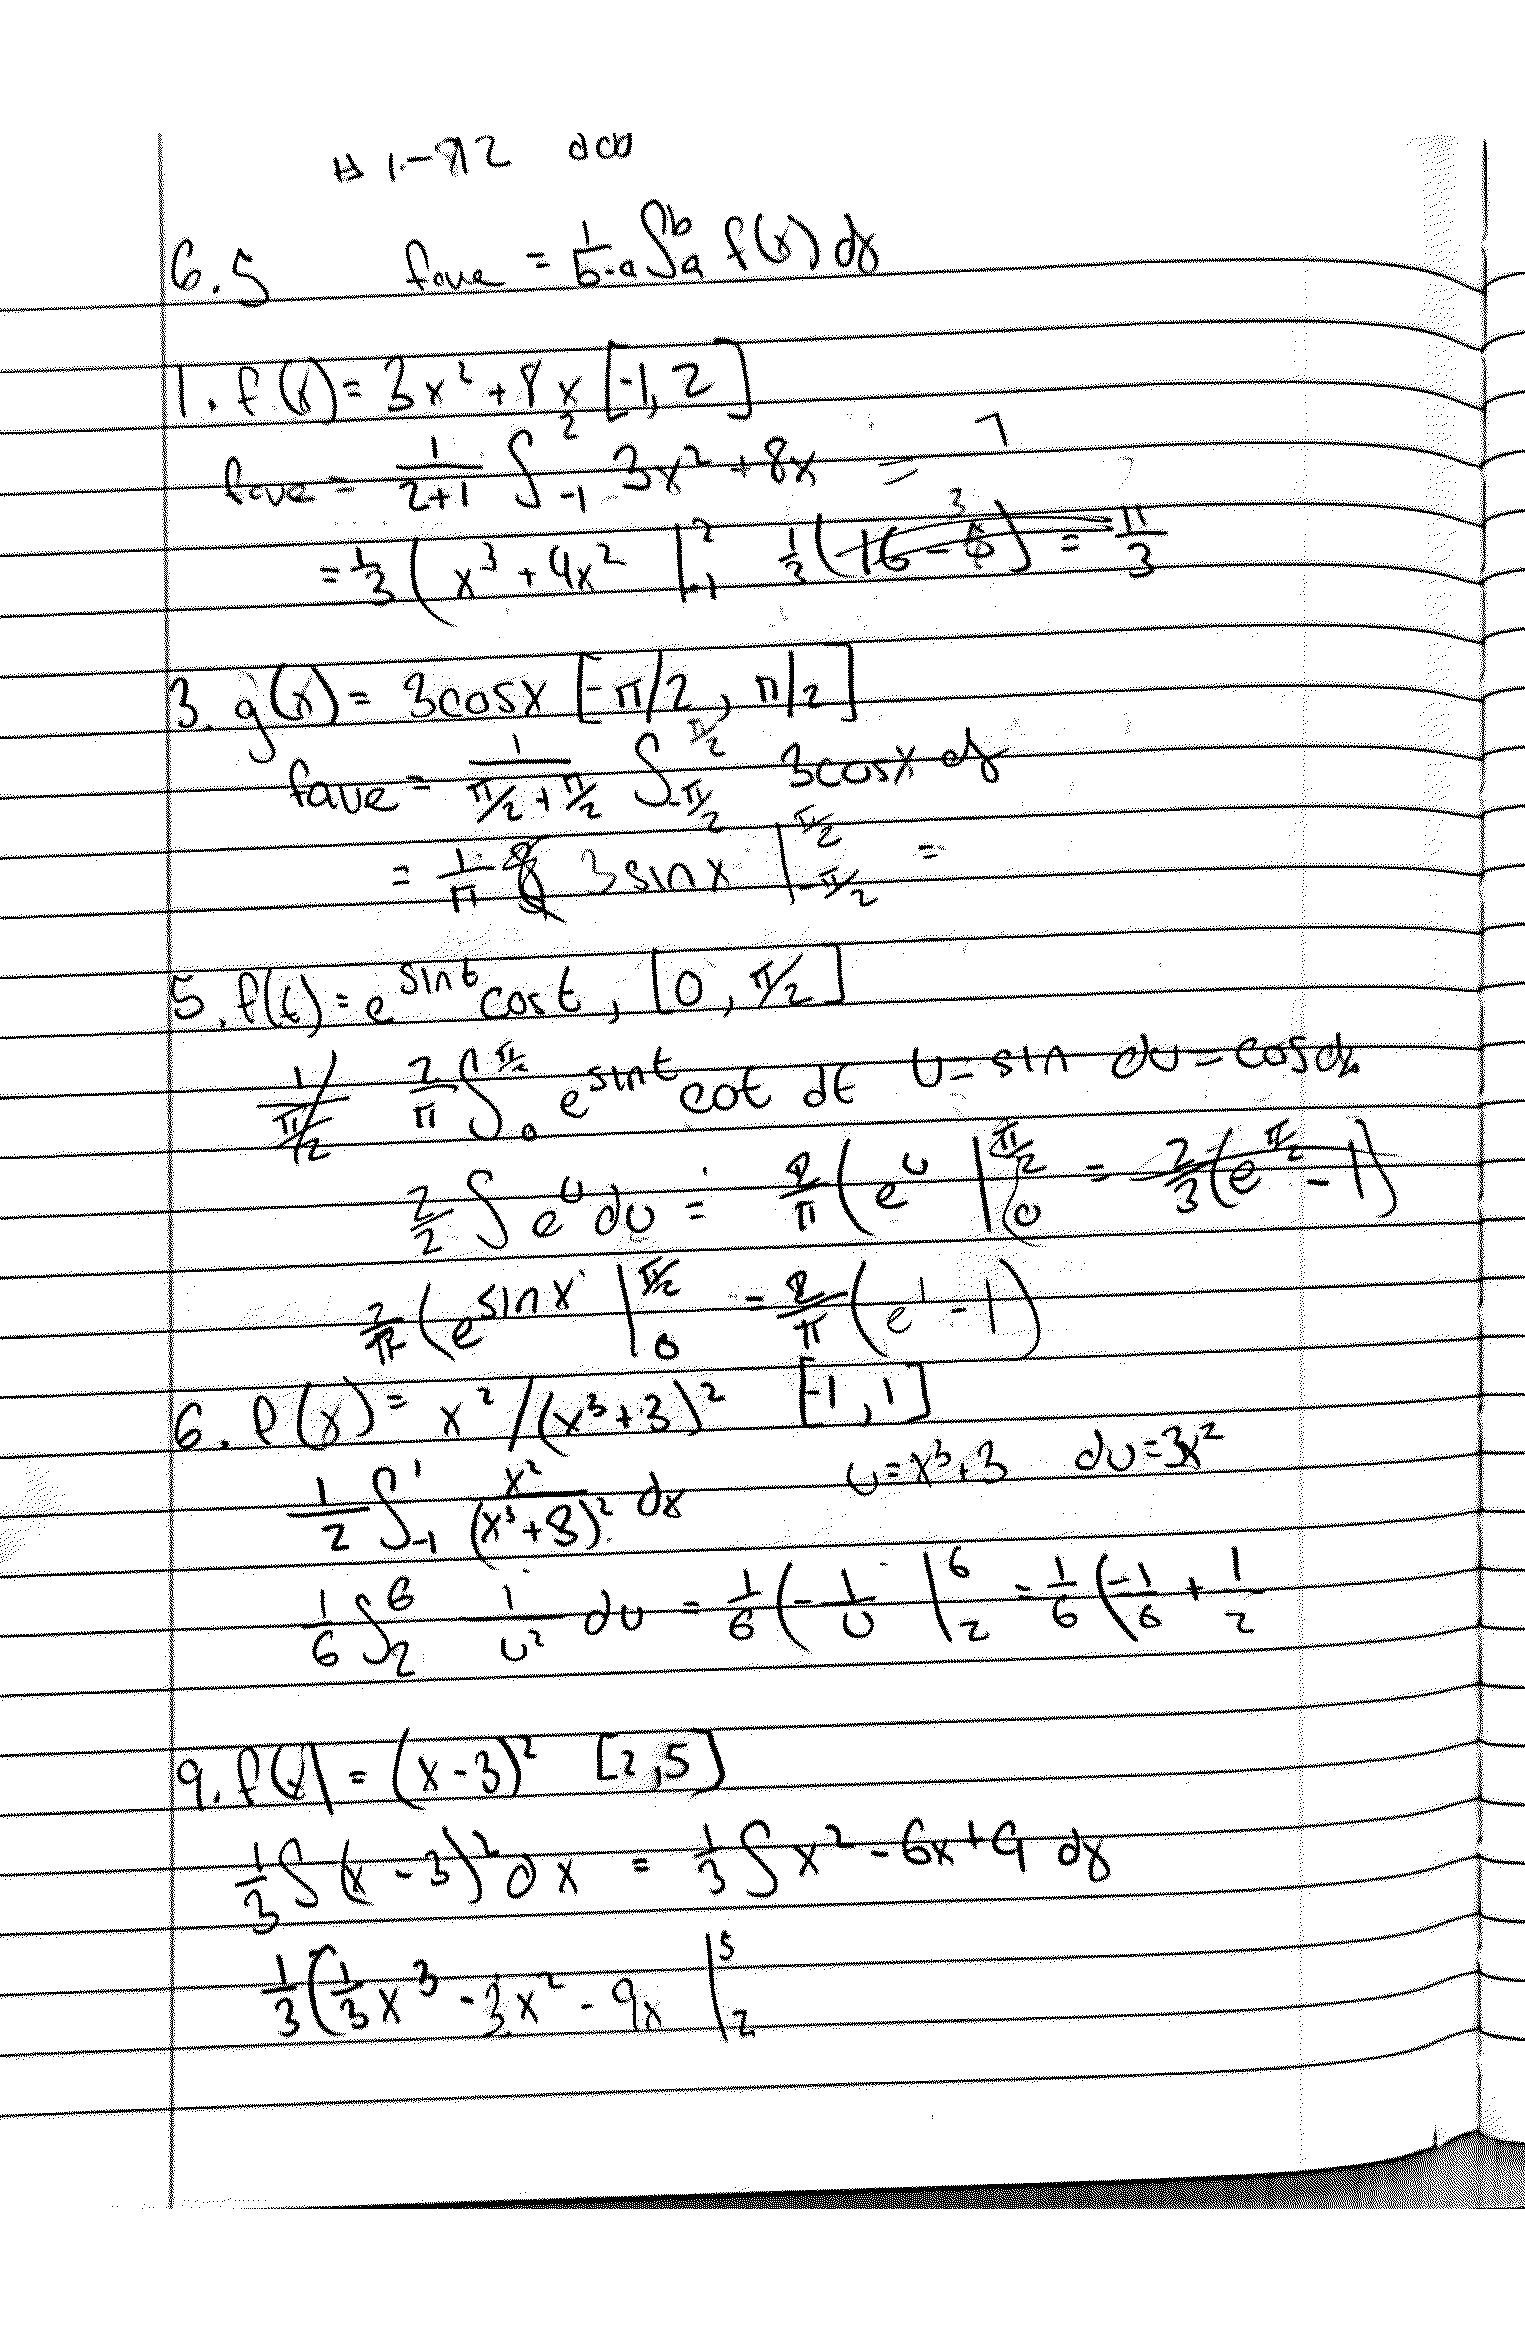 # 1-12 odd
6.5 fave = 1/b-a ∫ₐᵇ f(x) dx
1. f(x) = 3x² + 8x [-1, 2]
fave = 1/(2+1) ∫₋₁² 3x² + 8x = 7
= 1/3 ( x³ + 4x² |₋₁² 1/3 (16 - 3) = 11/3
3. g(x) = 3cosx [-π/2, π/2]
fave = 1/(π/2 + π/2) ∫_{-π/2}^{π/2} 3cosx dx
= 1/π 3sinx |_{-π/2}^{π/2} =
5. f(t) = e^{sint} cost, [0, π/2]
1/(π/2) 2/π ∫₀^{π/2} e^{sint} cot dt u = sin du = cosdx
2/2 ∫ e^u du = 2/π ( e^u |₀^{π/2} = 2/3 (e^{π/2} - 1)
2/π ( e^{sinx} |₀^{π/2} = 2/π ( e¹ - 1 )
6. f(x) = x²/(x³+3)² [-1, 1]
1/2 ∫₋₁¹ x²/(x³+3)² dx u = x³+3 du = 3x²
1/6 ∫₂⁶ 1/u² du = 1/6 ( -1/u |₂⁶ = 1/6 ( -1/6 + 1/2
9. f(x) = (x-3)² [2,5]
1/3 ∫ (x-3)² dx = 1/3 ∫ x² - 6x + 9 dx
1/3 ( 1/3 x³ - 3x² - 9x |₂⁵